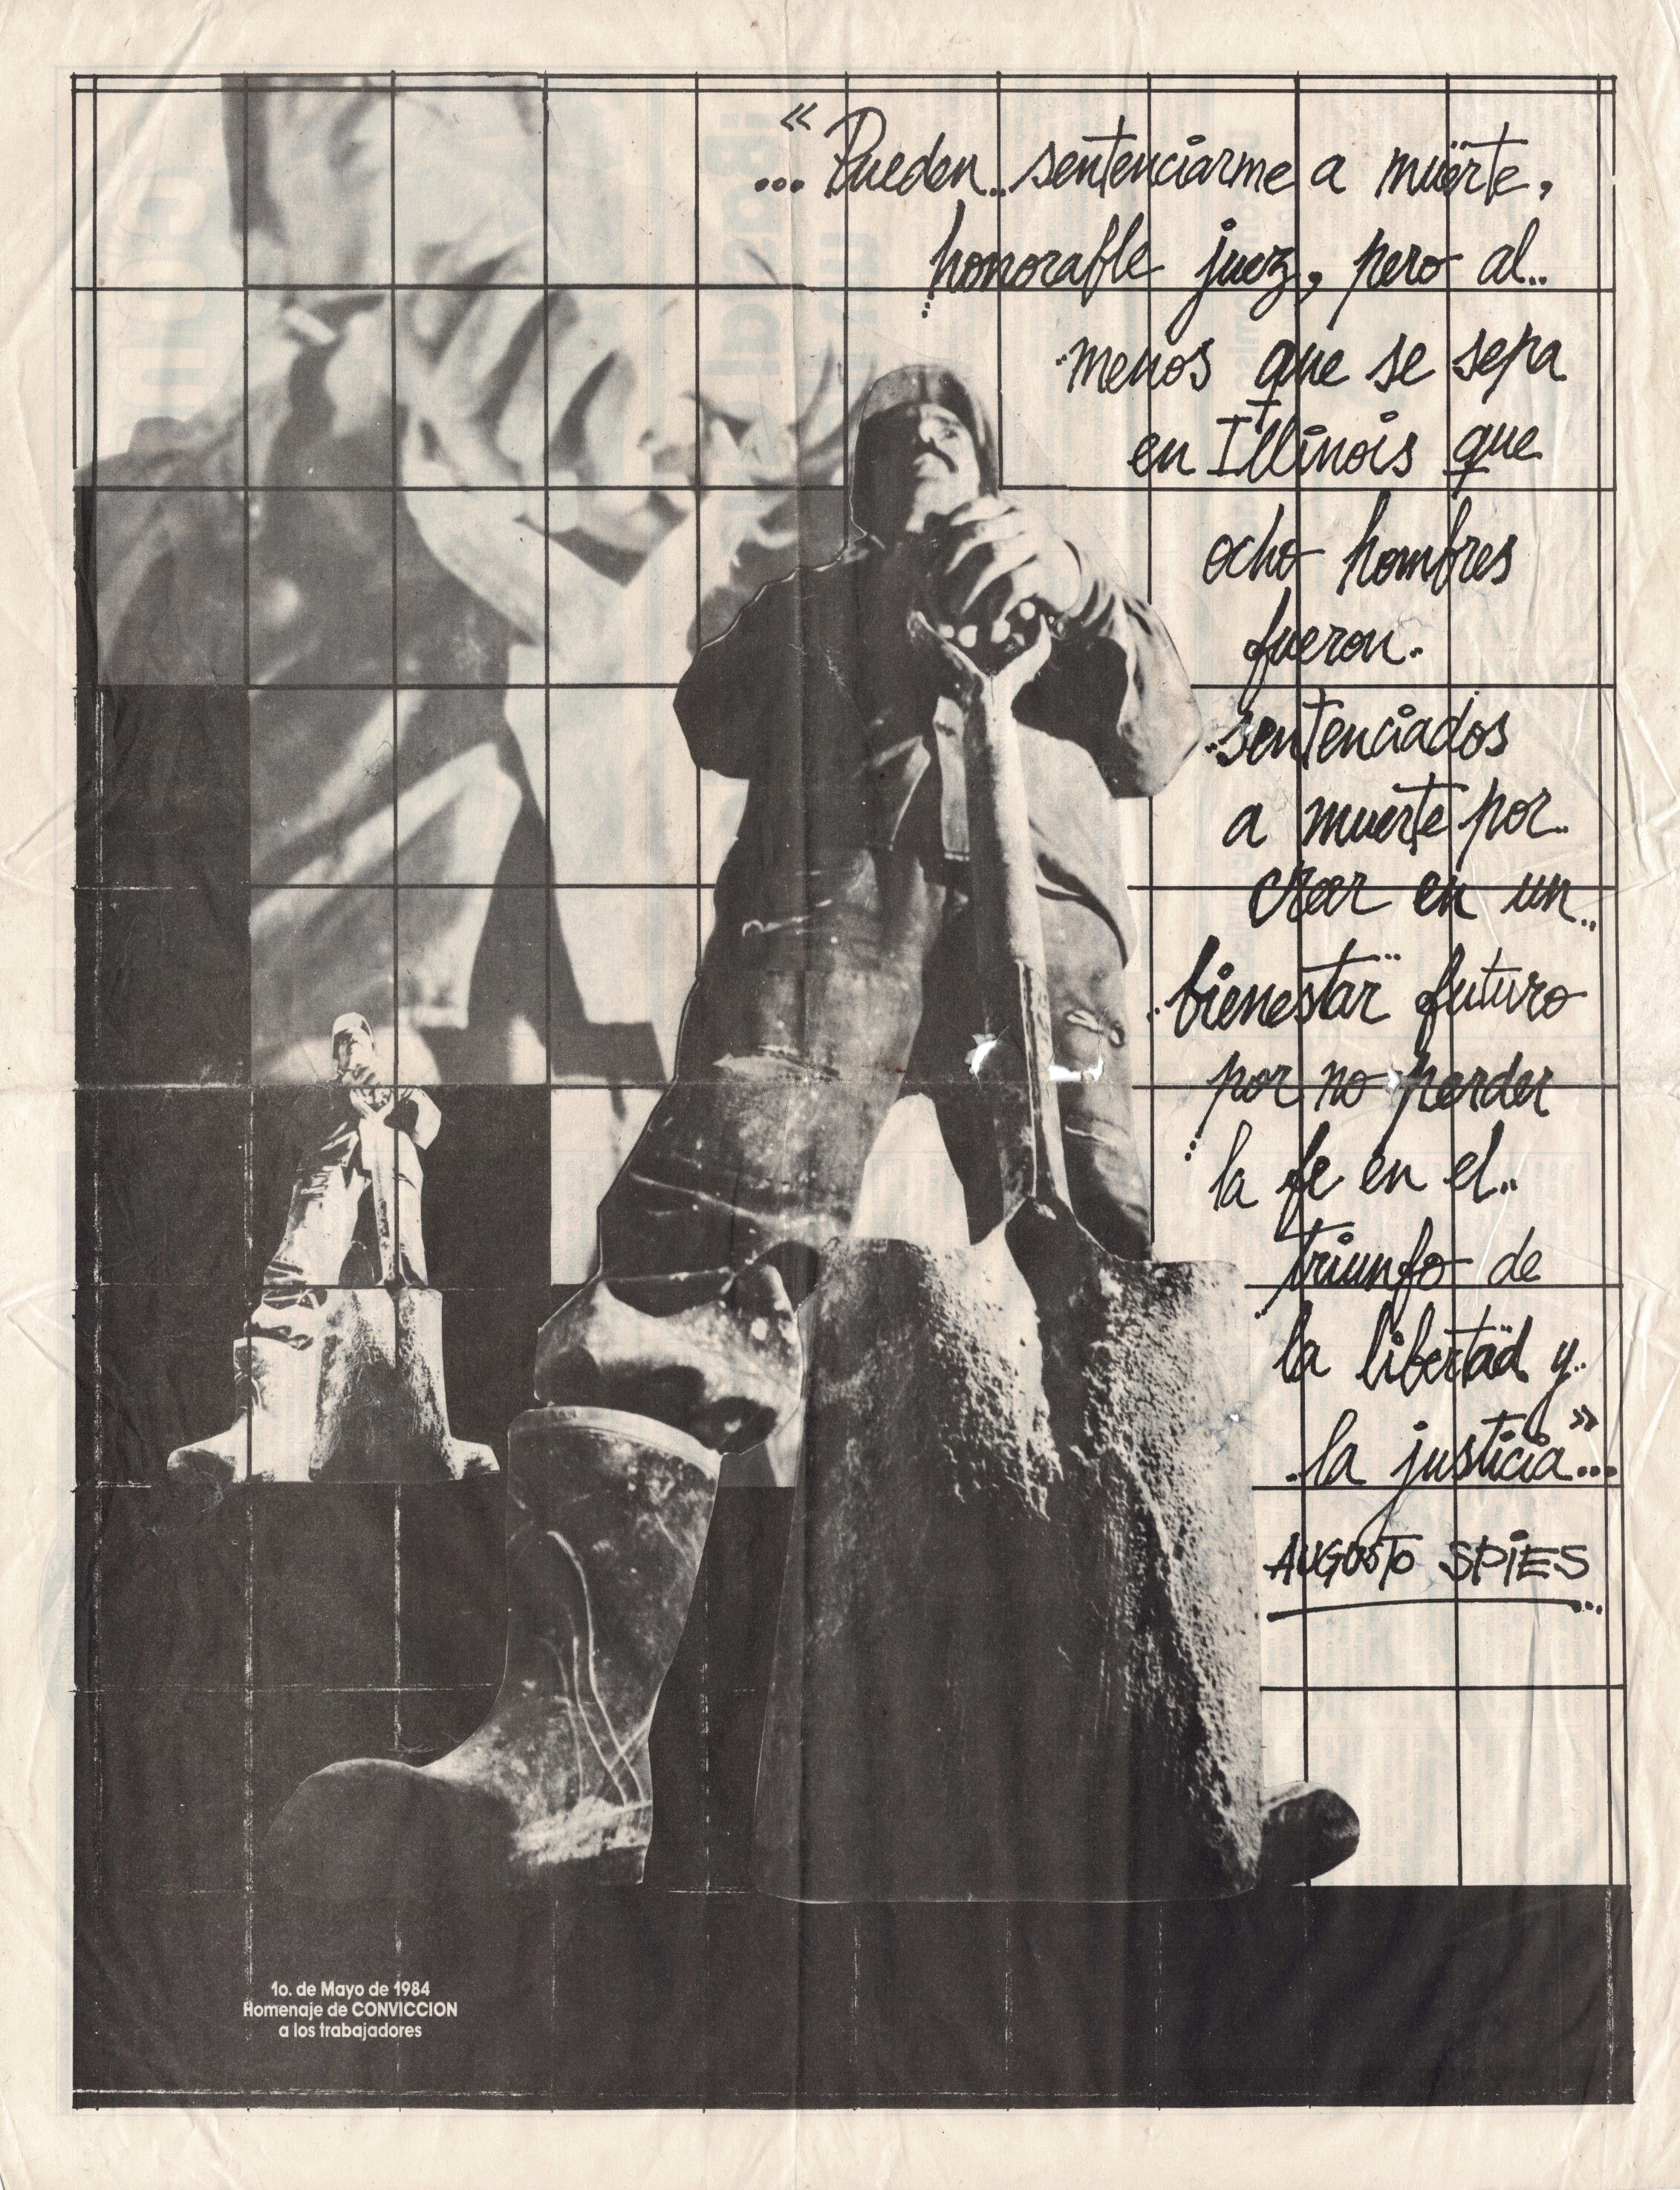 «
...Pueden..sentenciarme a muërte,
honorable juez, pero al..
menos que se sepa
en Illinois que
ocho hombres
fueron.
..sentenciados
a muerte por..
creer en un..
..bienestar futuro
por no perder
la fe en el..
triunfo de
la libertad y..
.la justicia"...
AUGUSTO SPIES
1o. de Mayo de 1984
Homenaje de CONVICCION
a los trabajadores